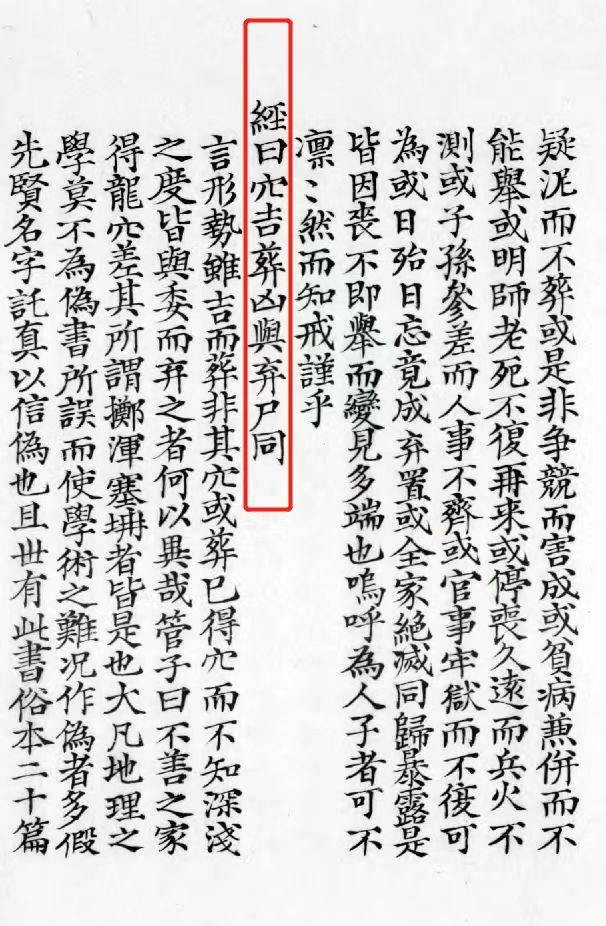 疑泥而不葬或是非争競而害成或貧病蕉併而不
能舉或明師老死不復再来或停喪久遠而兵火不
測或子孫參差而人事不齊或官事牢獄而不復可
為或日殆日忘竟成弃置或全家絕滅同歸暴露是
皆因喪不即舉而變見多端也嗚呼為人子者可不
凛〻然而知戒謹乎
經曰穴吉葬凶與弃尸同
言形勢雖吉而葬非其穴或葬已得穴而不知深淺
之度皆與委而弃之者何以異哉管子曰不善之家
得龍穴差其所謂擲渾塞𡋯者皆是也大凡地理之
學莫不為偽書所誤而使學術之難况作偽者多假
先賢名字託真以信偽也且丗有此書俗本二十篇